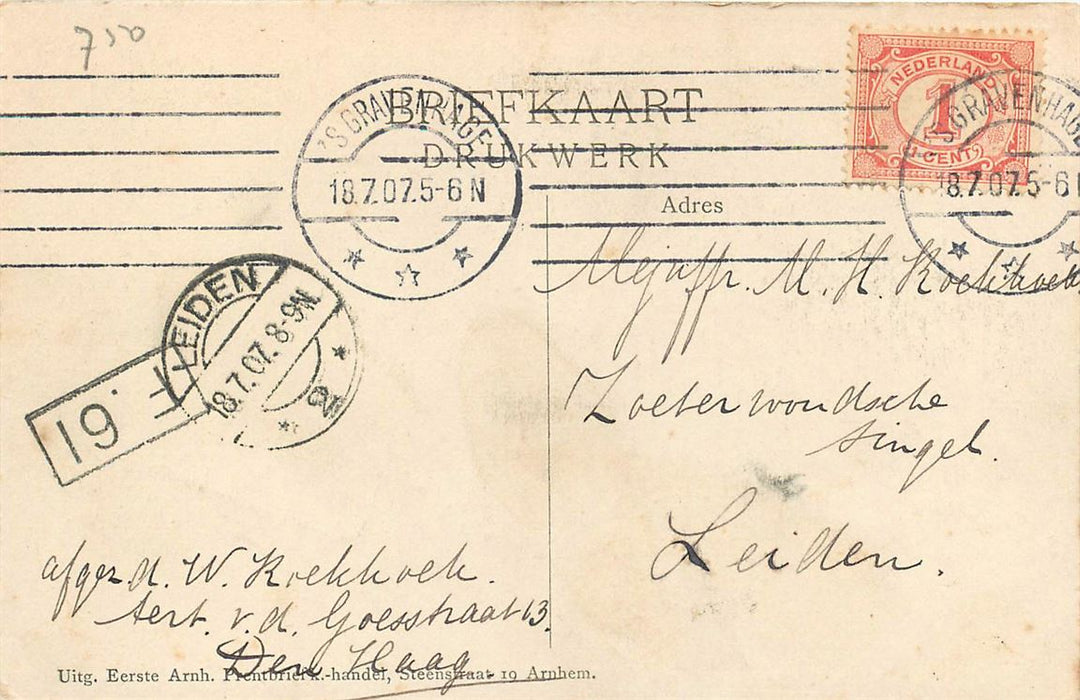 750
BRIEFKAART
DRUKWERK
Adres
NEDERLAND
1
CENT
'S GRAVENHAGE
18.7.07.5-6 N
'S GRAVENHAGE
18.7.07.5-6 N
LEIDEN
18.7.07.8-9N
2
19
Mejuffr. M. H. Koekkoek
Zoeterwoudsche
singel.
Leiden.
afgez. d. W. Koekkoek.
Aert. v. d. Goesstraat 13.
Den Haag
Uitg. Eerste Arnh. Prentbriefk.-handel, Steenstraat 19 Arnhem.